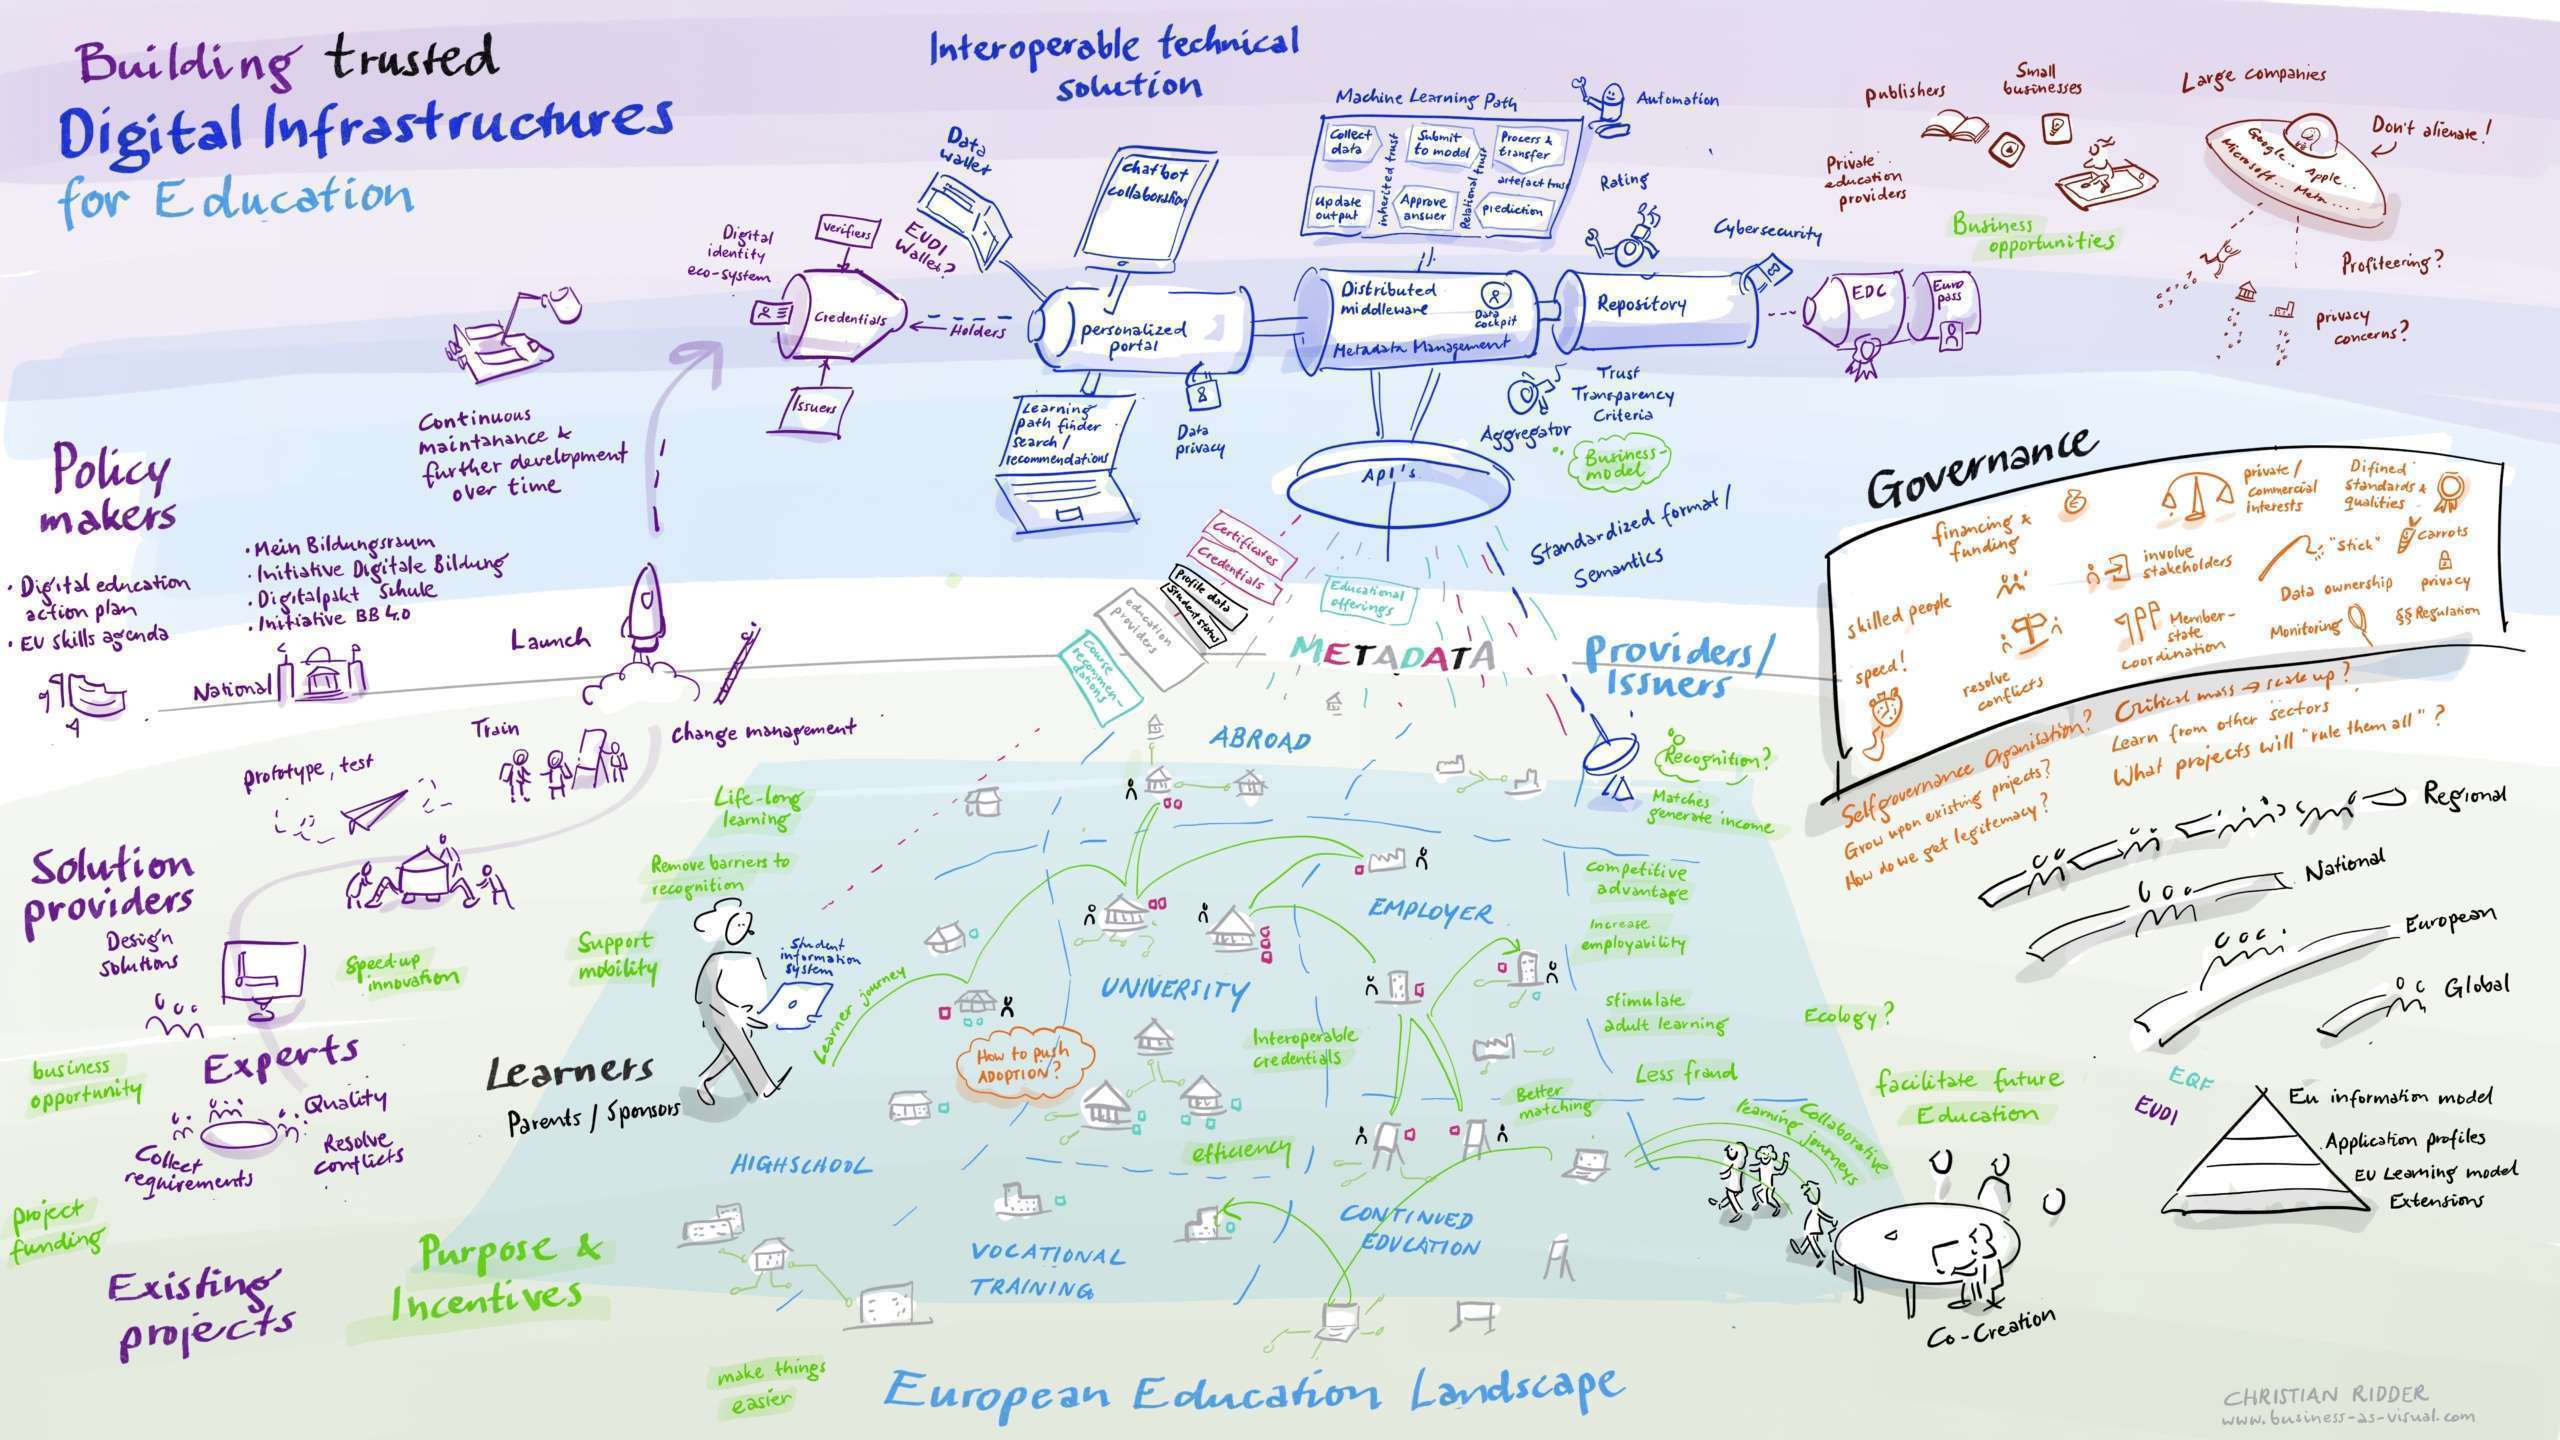 Building trusted
Digital Infrastructures
for Education
Interoperable technical
solution
Data
wallet
Chatbot
collaboration
Machine Learning Path
Collect
data
Submit
to model
Process &
transfer
inherited trust
Relational trust
artefact trust
Update
output
Approve
answer
prediction
Automation
Rating
Cybersecurity
Digital
identity
eco-system
Verifiers
EUDI
Wallet?
Credentials
Holders
Issuers
personalized
portal
Distributed
middleware
Data
cockpit
Metadata Management
Repository
EDC
Euro
pass
Learning
path finder
search/
recommendations
Data
privacy
API's
Aggregator
Trust
Transparency
Criteria
Business-
model
Standardized format/
Semantics
publishers
Small
businesses
Large companies
Private
education
providers
Business
opportunities
Google.. Apple...
Microsoft.. Meta....
Don't alienate!
Profiteering?
privacy
concerns?
Continuous
maintanance &
further development
over time
Policy
makers
• Digital education
action plan
• EU skills agenda
• Mein Bildungsraum
• Initiative Digitale Bildung
• Digitalpakt Schule
• Initiative BB 4.0
National
Launch
Train
change management
prototype, test
Certificates
Credentials
Profile data
Student status
education
providers
Course
recommen-
dations
Educational
offerings
METADATA
Providers/
Issuers
Governance
financing &
funding
private/
commercial
interests
Difined
standards &
qualities
skilled people
involve
stakeholders
"Stick"
Carrots
Data ownership
privacy
speed!
resolve
conflicts
Member-
state
coordination
Monitoring
§§ Regulation
Selfgovernance Organisation?
Grow upon existing projects?
How do we get legitemacy?
Critical mass → scale up?
Learn from other sectors
What projects will "rule them all"?
Regional
National
European
Global
Solution
providers
Design
solutions
Speed-up
innovation
business
opportunity
Experts
Quality
Collect
requirements
Resolve
conflicts
project
funding
Existing
projects
Purpose &
Incentives
Life-long
learning
Remove barriers to
recognition
Support
mobility
Student
information
system
Learner journey
Learners
Parents / Sponsors
ABROAD
UNIVERSITY
EMPLOYER
HIGHSCHOOL
VOCATIONAL
TRAINING
CONTINUED
EDUCATION
How to push
ADOPTION?
Interoperable
credentials
efficiency
Better
matching
Recognition?
Matches
generate income
competitive
advantage
Increase
employability
stimulate
adult learning
Less fraud
Collaborative
learning journeys
Ecology?
facilitate future
Education
EQF
EUDI
EU information model
Application profiles
EU Learning model
Extensions
Co-Creation
make things
easier
European Education Landscape
CHRISTIAN RIDDER
www.business-as-visual.com